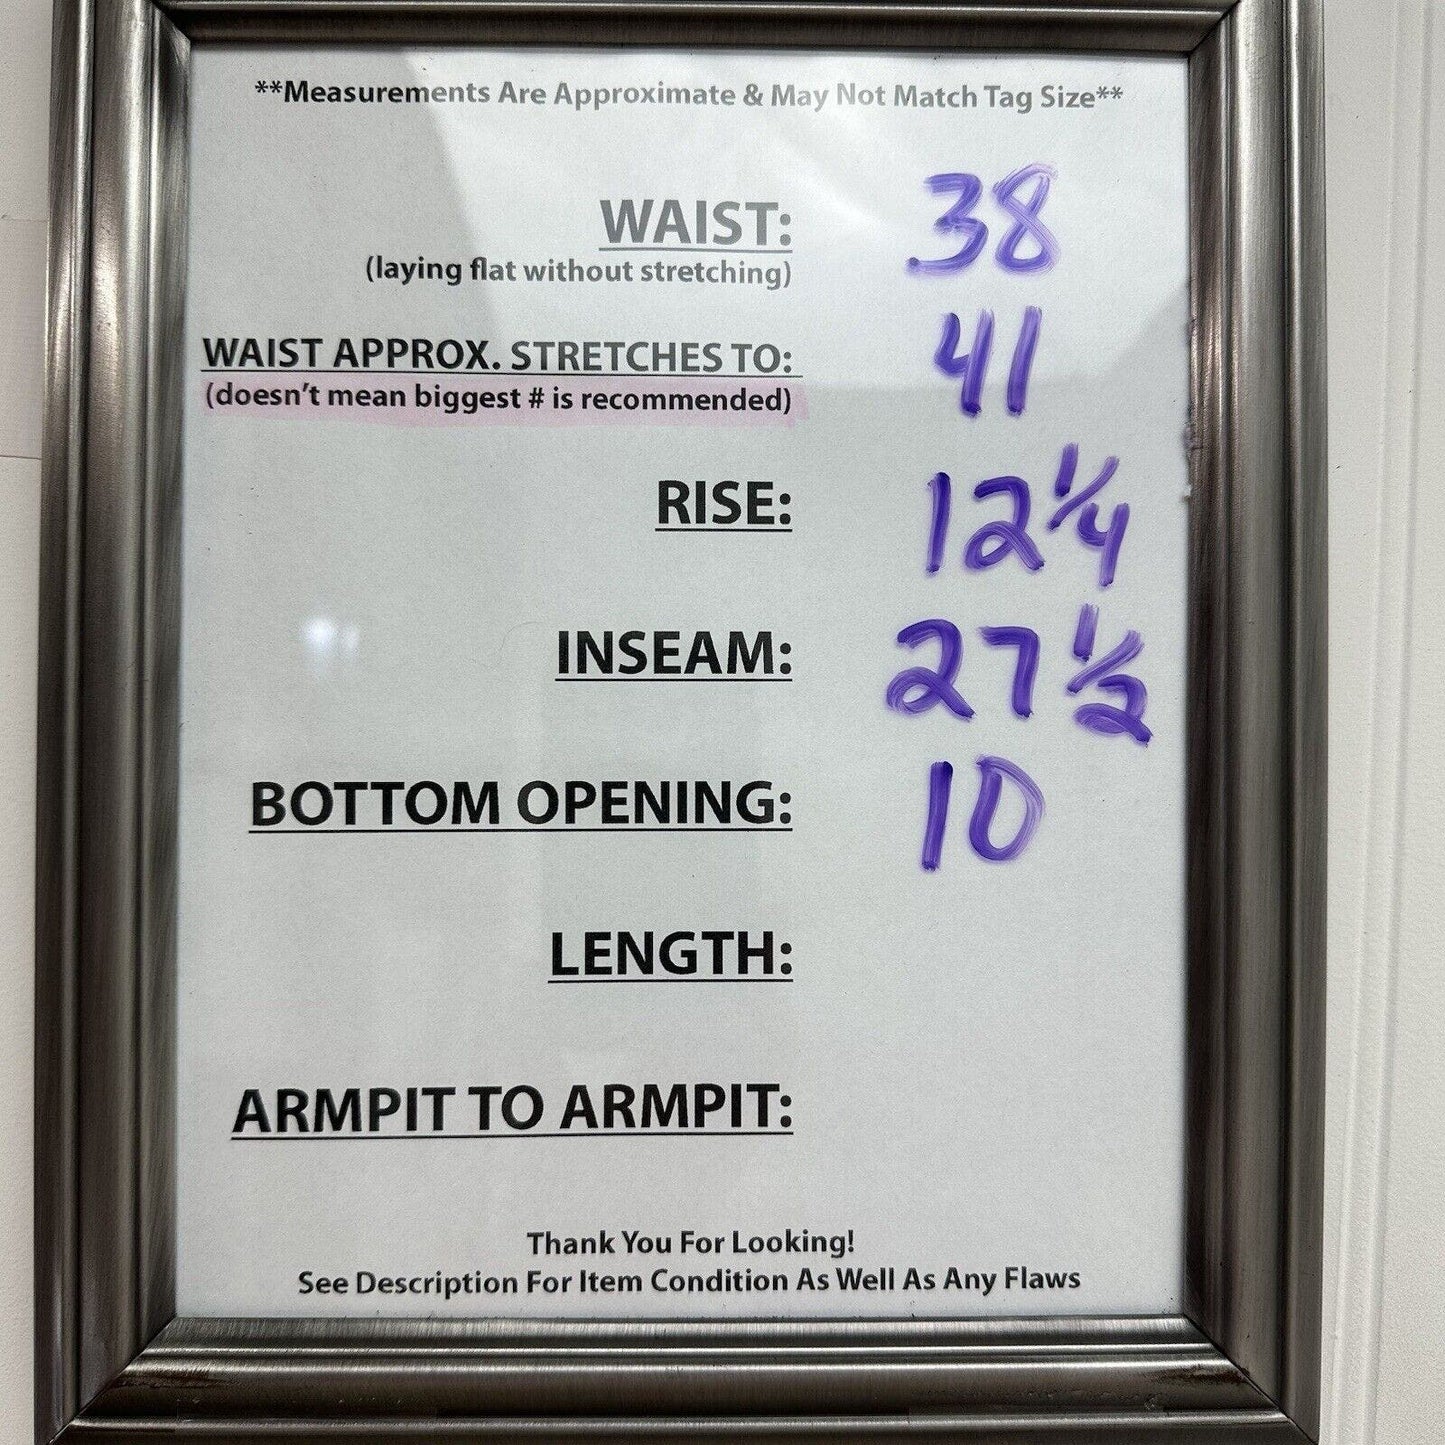 **Measurements Are Approximate & May Not Match Tag Size**
WAIST: 38
(laying flat without stretching)
WAIST APPROX. STRETCHES TO: 41
(doesn't mean biggest # is recommended)
RISE: 12 1/4
INSEAM: 27 1/2
BOTTOM OPENING: 10
LENGTH:
ARMPIT TO ARMPIT:
Thank You For Looking!
See Description For Item Condition As Well As Any Flaws